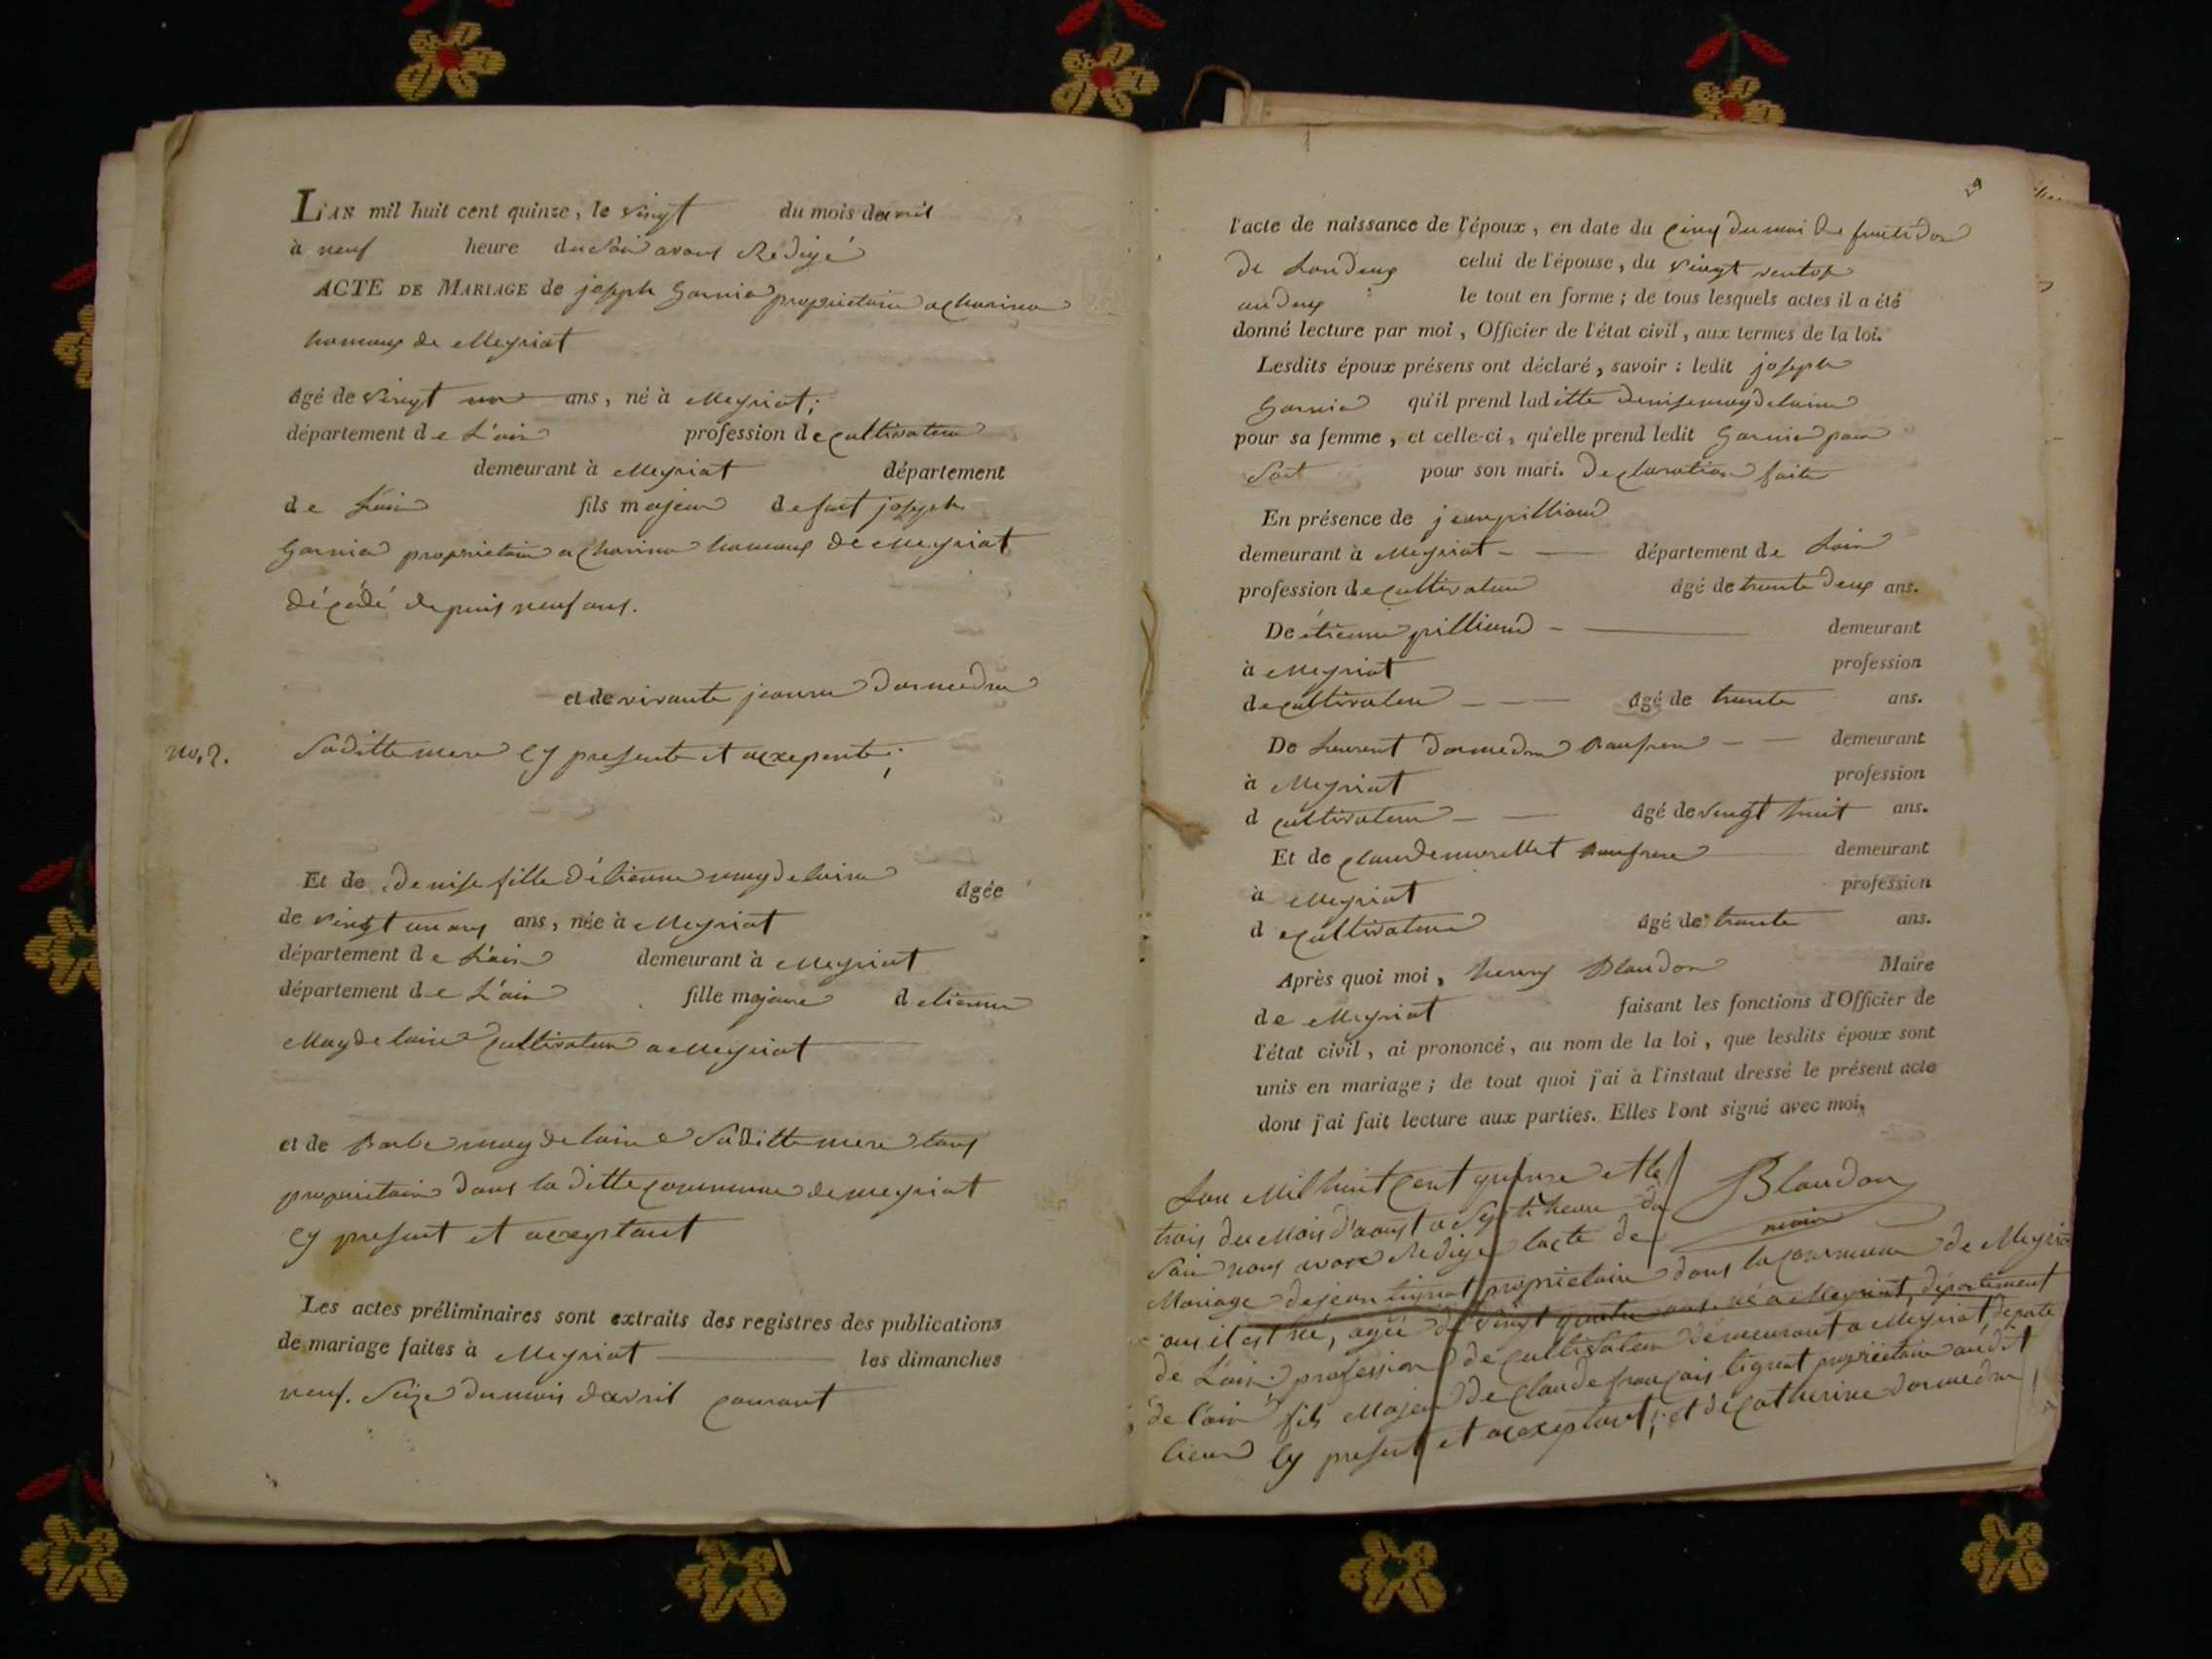 L'AN mil huit cent quinze, le vingt du mois d'avril
à neuf heure du soir avons Rédigé
ACTE DE MARIAGE de joseph Garnier proprietaire a charinaz
hameaux de Meyriat
âgé de vingt un ans, né à Meyriat;
département de L'ain profession de cultivateur
demeurant à Meyriat département
de L'ain fils majeur de fut joseph
Garnier proprietaire a charinaz hameaux de Meyriat
décédé depuis neuf ans.
et de vivante jeanne Dormedru
no. 2. Saditte mere Cy presente et
Et de denise fille d'étienne
âgée
de vingt un ans ans, née à Meyriat
département de L'ain demeurant à Meyriat
département de L'ain fille majeure d etienne
cultivateur a Meyriat
et de Barbe saditte mere tous
proprietaire dans laditte commune de Meyriat
Cy present et acceptant
Les actes préliminaires sont extraits des registres des publications
de mariage faites à Meyriat les dimanches
neuf. Seize du mois d'avril courant
l'acte de naissance de l'époux, en date du cinq du moi de fructidor
de Lan deux celui de l'épouse, du vingt ventose
an deux le tout en forme; de tous lesquels actes il a été
donné lecture par moi, Officier de l'état civil, aux termes de la loi.
Lesdits époux présens ont déclaré, savoir: ledit joseph
Garnier qu'il prend laditte denise
pour sa femme, et celle-ci, qu'elle prend ledit Garnier
pour son mari. Declaration faite
En présence de jean pilliond
demeurant à Meyriat département de Lain
profession de cultivateur âgé de trente deux ans.
De étienne pilliond demeurant
à Meyriat profession
de cultivateur âgé de trente ans.
De Laurent Dormedru Baufrere demeurant
à Meyriat profession
d cultivateur âgé de vingt huit ans.
Et de claude Baufrere demeurant
à Meyriat profession
d e cultivateur âgé de trente ans.
Après quoi moi, henry Blandon Maire
de Meyriat faisant les fonctions d'Officier de
l'état civil, ai prononcé, au nom de la loi, que lesdits époux sont
unis en mariage; de tout quoi j'ai à l'instaut dressé le présent acte
dont j'ai fait lecture aux parties. Elles l'ont signé avec moi.
Blandon
maire
Lan Mil huit Cent quinze et le
trois du Mois d'aoust a Sept heure du
Soir nous avons Redige lacte de
Mariage de jean lignat proprietaire dans la commune de Meyriat
ou il est né, agée de vingt quatre ans. né a Meyriat, département
de L'ain; profession de cultivateur demeurant a Meyriat, départe
de l'ain fils Majeur de claude francois lignat proprietaire audit
lieu Cy present et acceptant; et de Catherine Dormedru